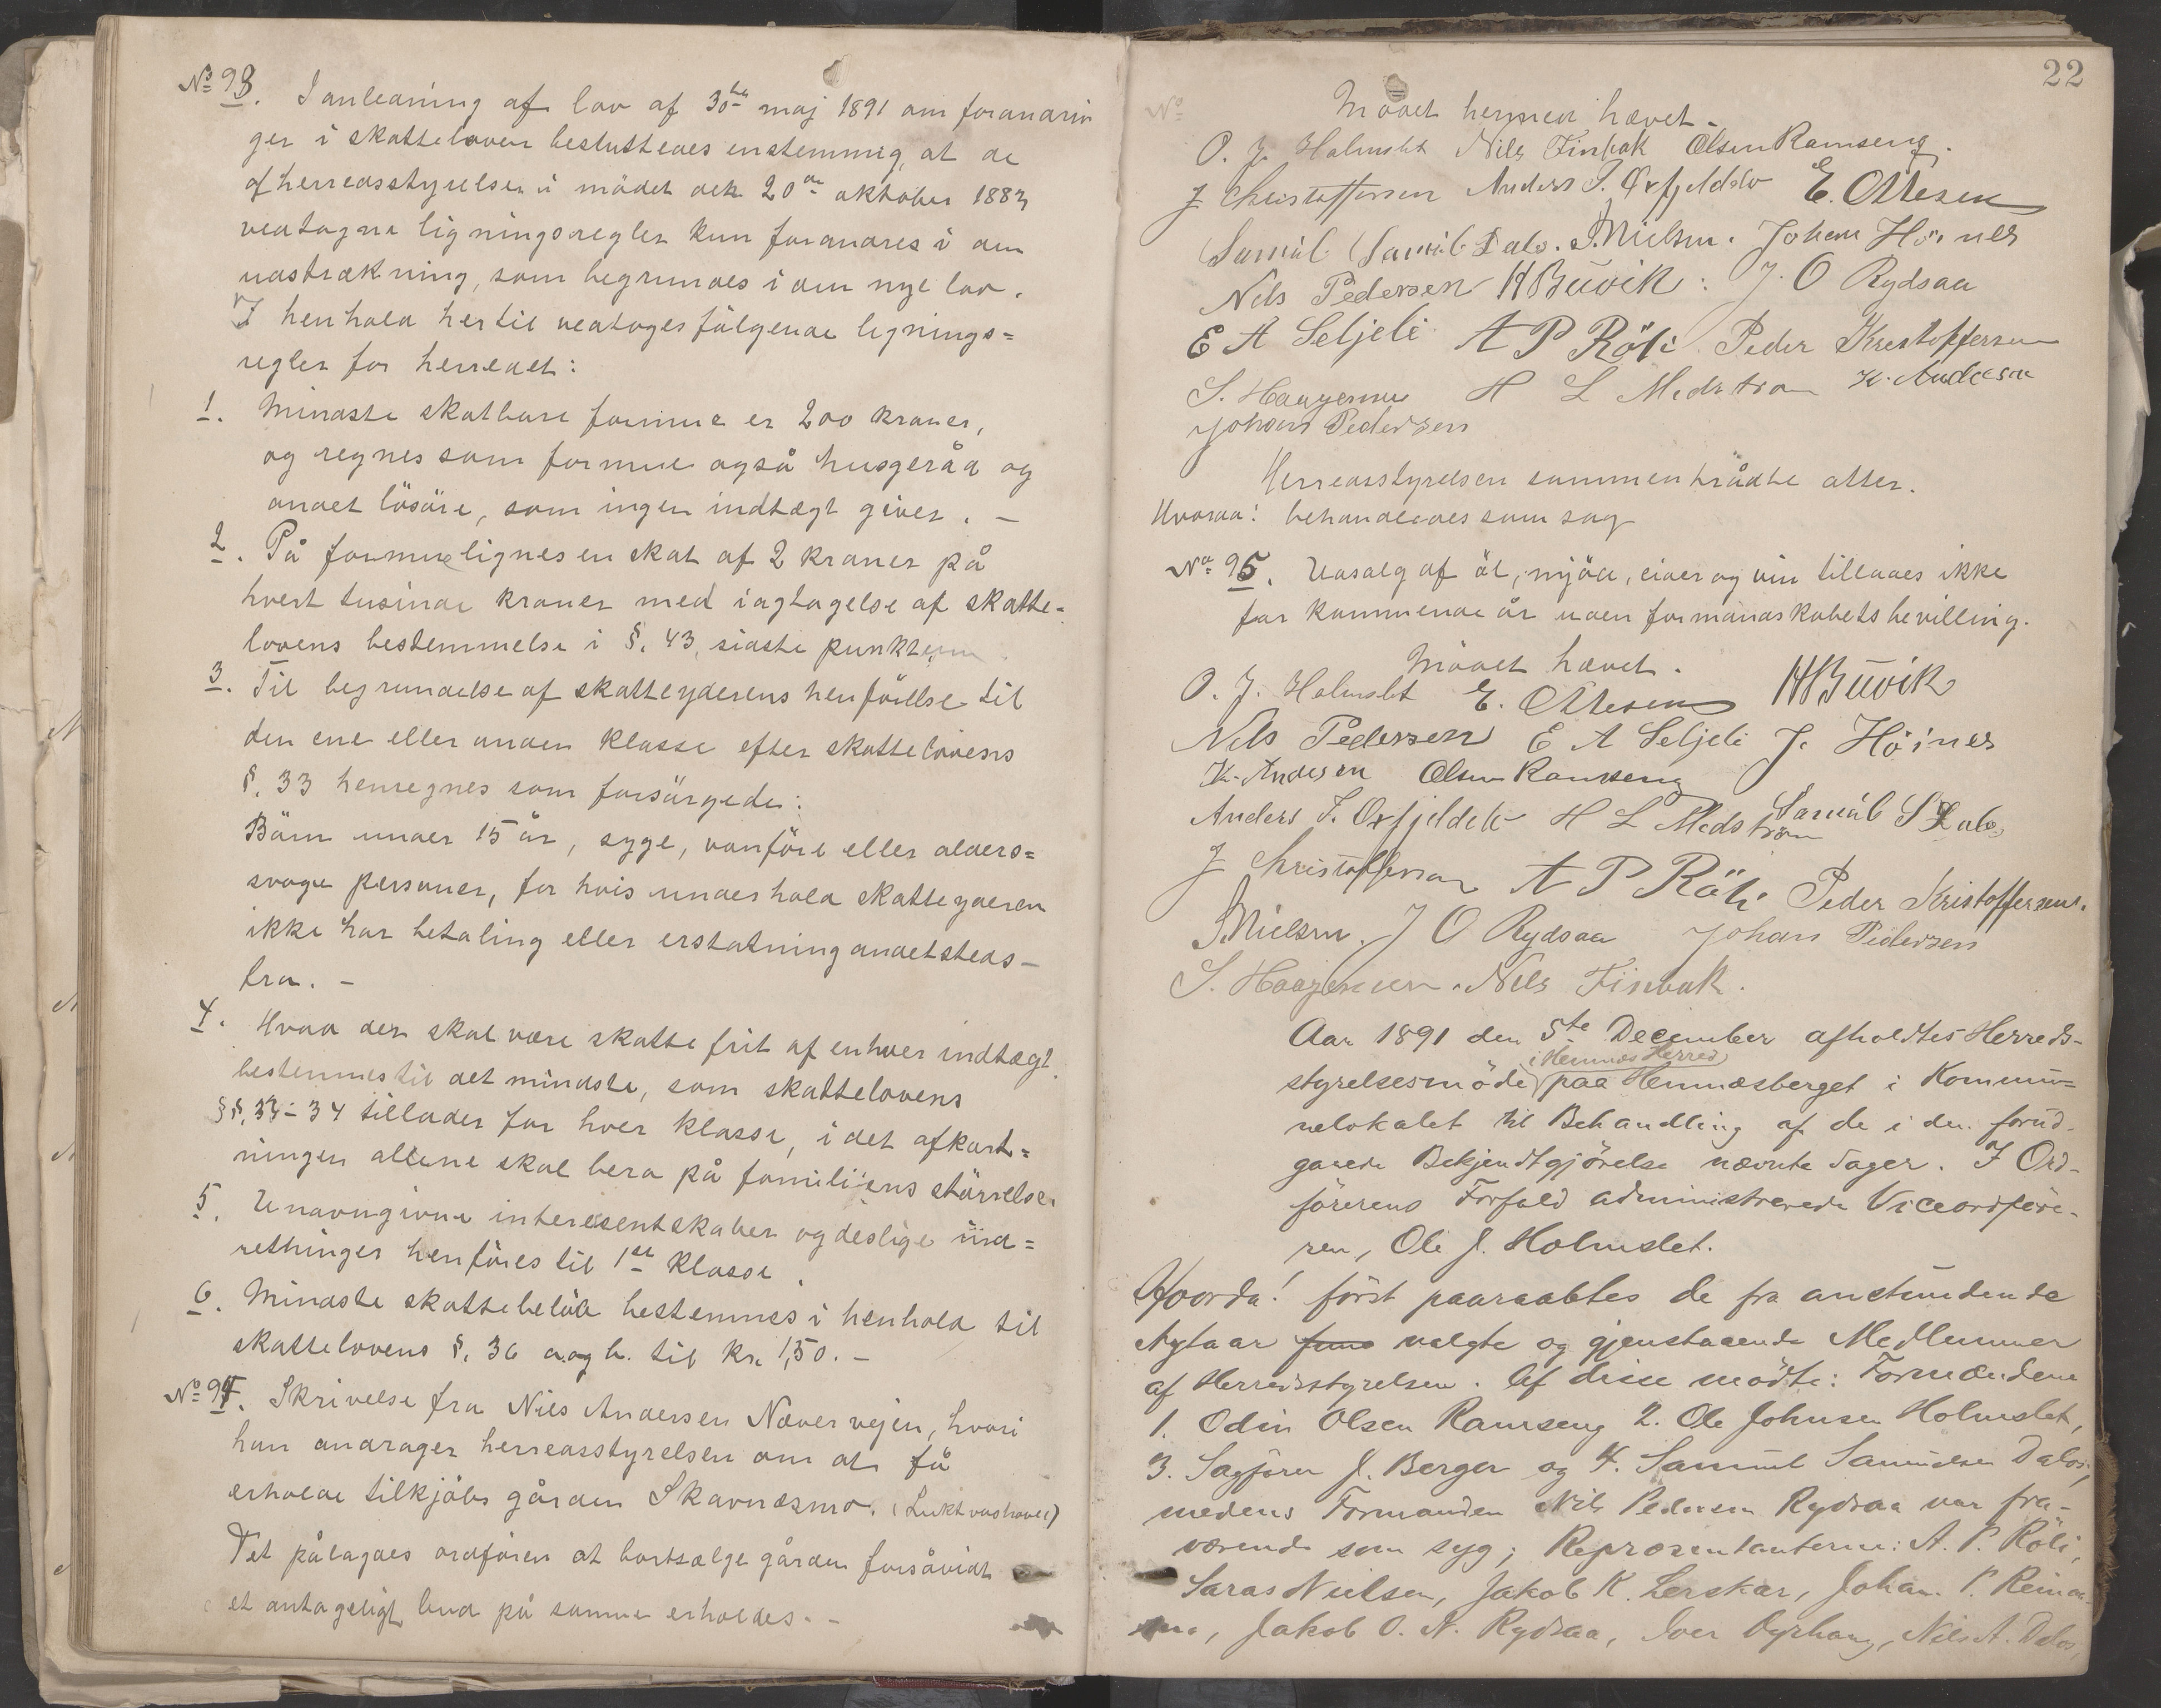 No 93. I anledning af lov af 30te maj 1891 om forandrin
ger i skatteloven besluttedes enstemmig, at de
af herredsstyrelsen i mödet den 20de oktober 1883
vedtagne ligningsregler kun forandres i den
udstrækning, som begrundes i den nye lov.
I henhold hertil vedtoges fölgende lignings=
regler for herredet:
1. Mindste skatbare formue er 200 kroner,
og regnes som formue også husgeråd og
andet lösöre, som ingen indtægt giver. –
2. På formue lignes en skat af 2 kroner på
hvert tusinde kroner med iagtagelse af skatte=
lovens bestemmelse i §. 43, sidste punktum
3. Til begrundelse af skatteyderens henförelse til
den ene eller anden klasse efter skattelovens
§. 33 henregnes som forsörgede:
Börn under 15 år, syge, vanföre eller alders=
svage personer, for hvis underhold skatteyderen
ikke har betaling eller erstatning andetsteds–
fra. –
4. Hvad der skal være skattefrit af enhver indtægt
bestemmes til det mindste, som skattelovens
§§. 33–34 tillader for hver klasse, i det afkort=
ningen allene skal bero på familiens störrelse.
5. Unavngivne interesentskaber og deslige ind=
retninger henföres til 1ste klasse.
6. Mindste skattebelöb bestemmes i henhold til
skattelovens §. 36 a og b. til kr. 1,50. –
No 94. Skrivelse fra Nils Andersen Nævervejen, hvori
han andrager herredsstyrelsen om at få
erholde tilkjöbs gården Skavnæsmo. (Luktvashovet)
Det pålagdes ordfören at bortsælge gården forsåvidt
et antageligt bud på samme erholdes. –
22
No
Mödet hermed hævet.
O. J. Holmslet Nils Finbak Olsen Ramseng.
J Christoffersen Anders J. Öxfjeldelv E. Ottesen
Samuel Samuels Dalos. S. Nielsen. Johan Höines
Nils Pedersen H Buvik. J. O Rydsaa
E A Seljeli A P Röli. Peder Kristoffersen
S. Haagensen H L Medström K. Andersen
Johan Pedersen
Herredsstyrelsen sammentrådte atter.
Hvorda! behandledes som sag
No 95. Udsalg af öl, mjöd, cider og vin tillades ikke
for kommende år uden formandskabets bevilling.
Mödet hævet.
O. J. Holmslet E. Ottesen H Buvik
Nils Pedersen E A Seljeli J. Höines
K. Andersen Olsen Ramseng
Anders J. Öxfjeldelv H L Medström Samuel S Dalos
J Christoffersen A P Röli Peder Kristoffersen.
S. Nielsen. J O Rydsaa Johan Pedersen
S. Haagensen. Nils Finbak.
Aar 1891 den 5te December afholdtes Herreds-
i Hemnes Herred
styrelsesmöde paa Hemnæsberget i Kommu=
nelokalet til Behandling af de i den forud-
gaaede Bekjendtgjörelse nævnte Sager. I Ord-
förerens Forfald administrerede Viceordföre-
ren, Ole J. Holmslet.
Hvorda! först paaraabtes de fra anstundende
Nytaar valgte og gjenstaaende Medlemmer
af Herredsstyrelsen. Af disse mödte: Formændene
1. Odin Olsen Ramseng 2. Ole Johnsen Holmslet,
3. Sagförer J. Berger og 4. Samuel Samuelsen Dalos,
medens Formanden Nils Pedersen Rydsaa var fra-
værende som syg; Repræsentanterne: A. P. Röli,
Saras Nielsen, Jakob K. Lerskar, Johan P.
Jakob O. N. Rydsaa, Iver Dyrhaug, Nils A. Dalos,